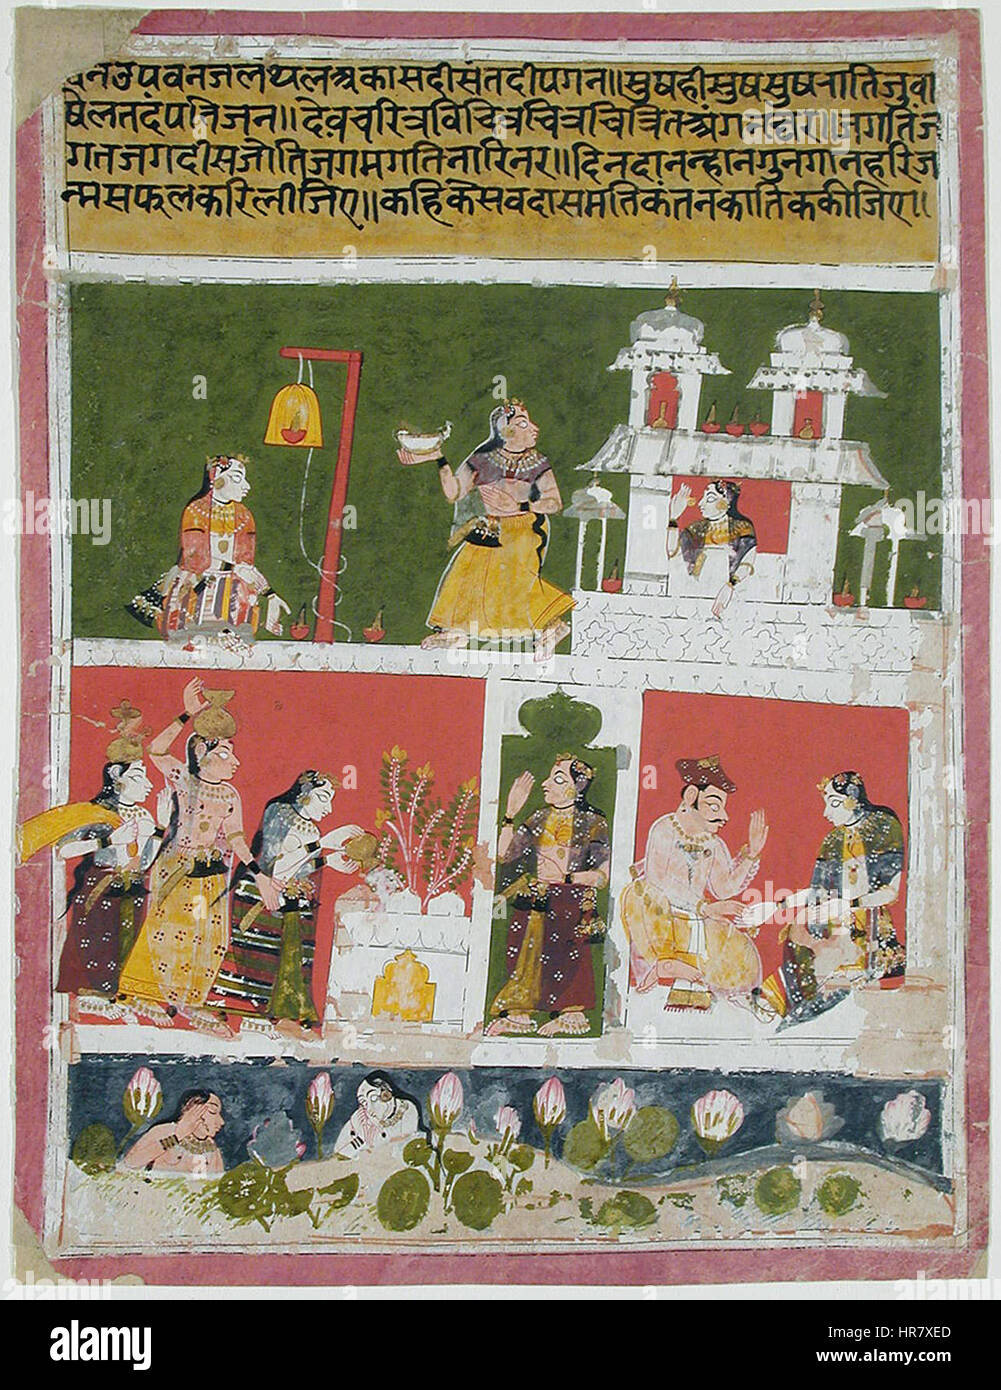 वनउपवनजलथलअकासदीसंतदीपगन॥सुषहीसुषसुषरातिजुवा
षेलतदंपतिजन॥देवचरित्रविचित्रचित्रचित्रितअंगनघर॥जगतिज
गतजगदीसजोतिजगमगतिनारिनर॥दिनदानन्हानगुनगानहरिज
न्मसफलकरिलीजिए॥कहिकेसवदासमतिकंतनकातिककीजिए॥
alamy
alamy
Image ID: HR7XED
www.alamy.com